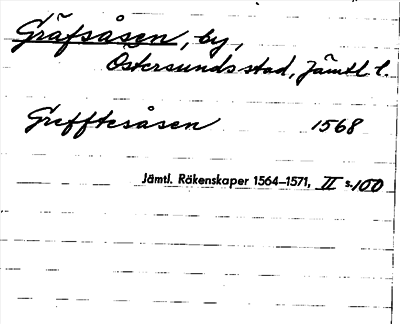 Gräfsåsen, by,
Östersunds stad, Jämtl. l.
Grefftesåsen 1568
Jämtl. Räkenskaper 1564–1571, II s. 100